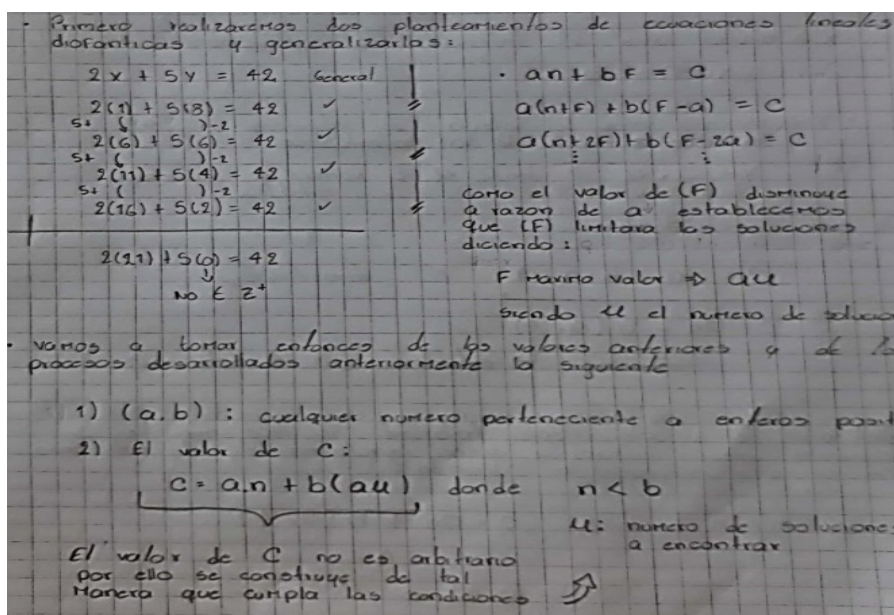 · Primero realizaremos dos planteamientos de ecuaciones lineales
diofanticas y generalizarlos:
2x + 5y = 42 General
2(1) + 5(8) = 42 ✓
5+ ( )-2
2(6) + 5(6) = 42 ✓
5+ ( )-2
2(11) + 5(4) = 42 ✓
5+ ( )-2
2(16) + 5(2) = 42 ✓
2(21) + 5(0) = 42
↓
NO ∈ Z⁺
· an + bF = C
a(n+F) + b(F-a) = C
a(n+2F) + b(F-2a) = C
⋮ ⋮
Como el valor de (F) disminuye
a razon de a establecemos
que (F) limitara las soluciones
diciendo:
F Maximo valor ⇒ au
siendo u el numero de solucio
· vamos a tomar entonces de los valores anteriores y de
procesos desarrollados anteriormente lo siguiente
1) (a.b) : cualquier numero perteneciente a enteros posit
2) El valor de C:
C = a.n + b(au) donde n < b
u: numero de soluciones
a encontrar
El valor de C no es arbitrario
por ello se construye de tal
Manera que cumpla las condiciones